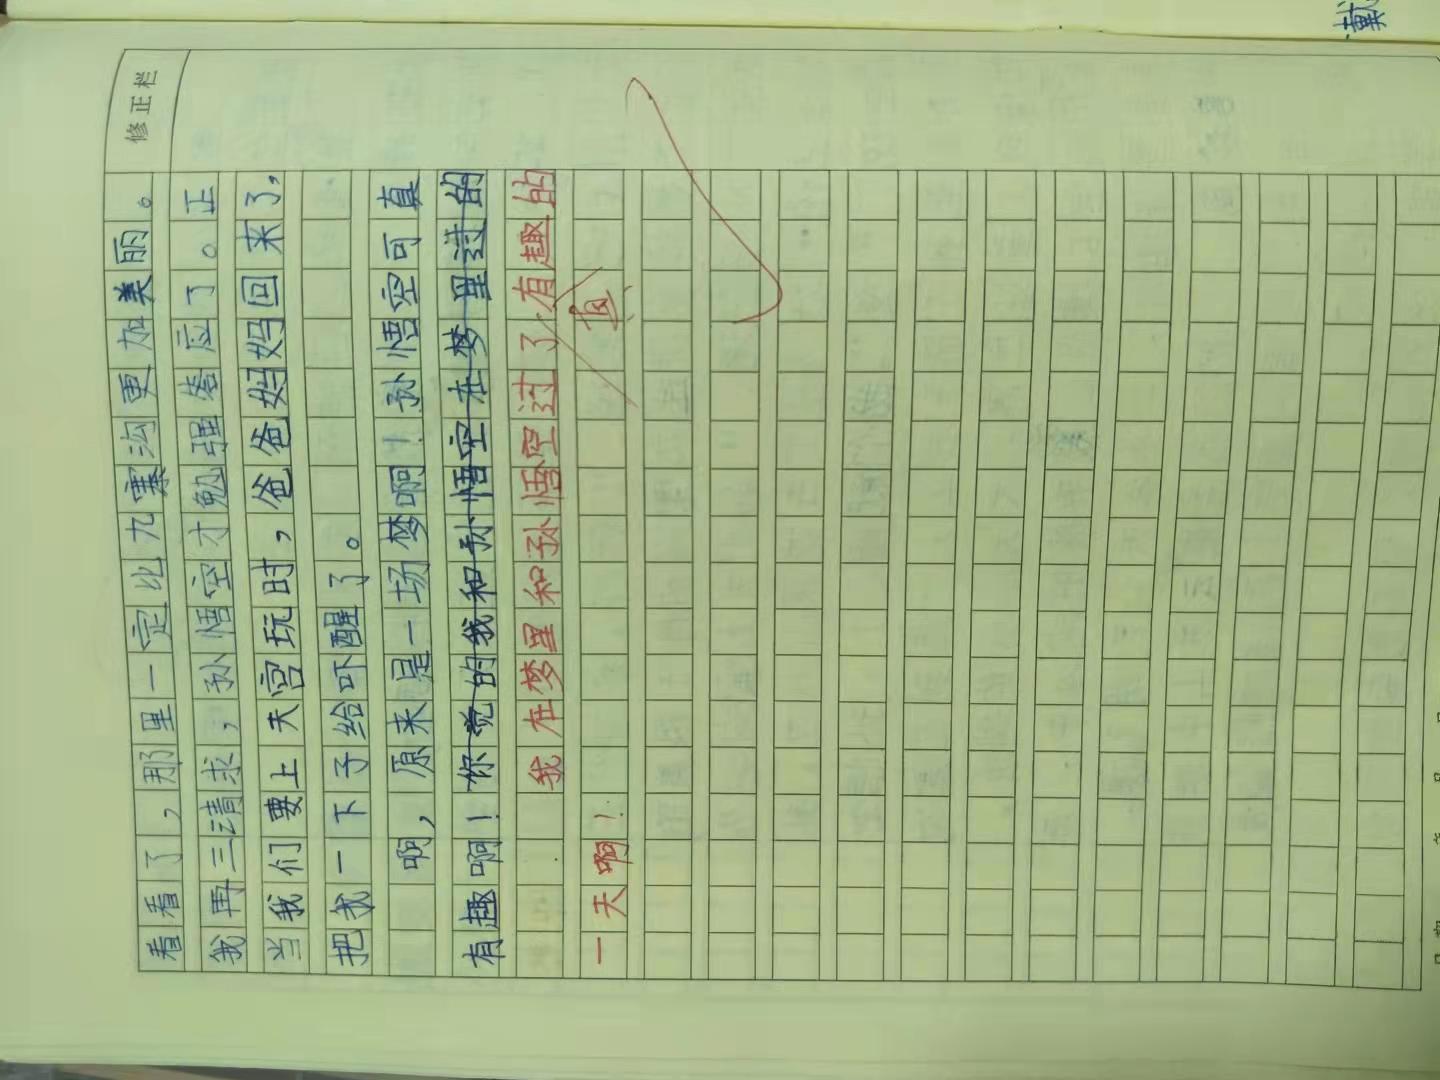 修正栏
看看了，那里一定比九寨沟更加美丽。
我再三请求，孙悟空才勉强答应了。正
当我们要上天宫玩时，爸爸妈妈回来了，
把我一下子给吓醒了。
啊，原来是一场梦啊！孙悟空可真
有趣啊！你觉的我和孙悟空在梦里过的
我在梦里和孙悟空过了有趣的
一天啊！